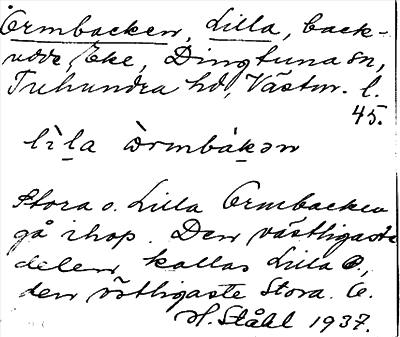 Ormbacken, Lilla, back-
udde, Eke, Dingtuna sn,
Tuhundra hd, Västm. l.
45.
lìl̠a òrmbák̠ən
Stora o. Lilla Ormbacken
gå ihop. Den västligaste
delen kallas Lilla O.,
den östligaste Stora O.
H. Ståhl 1937.